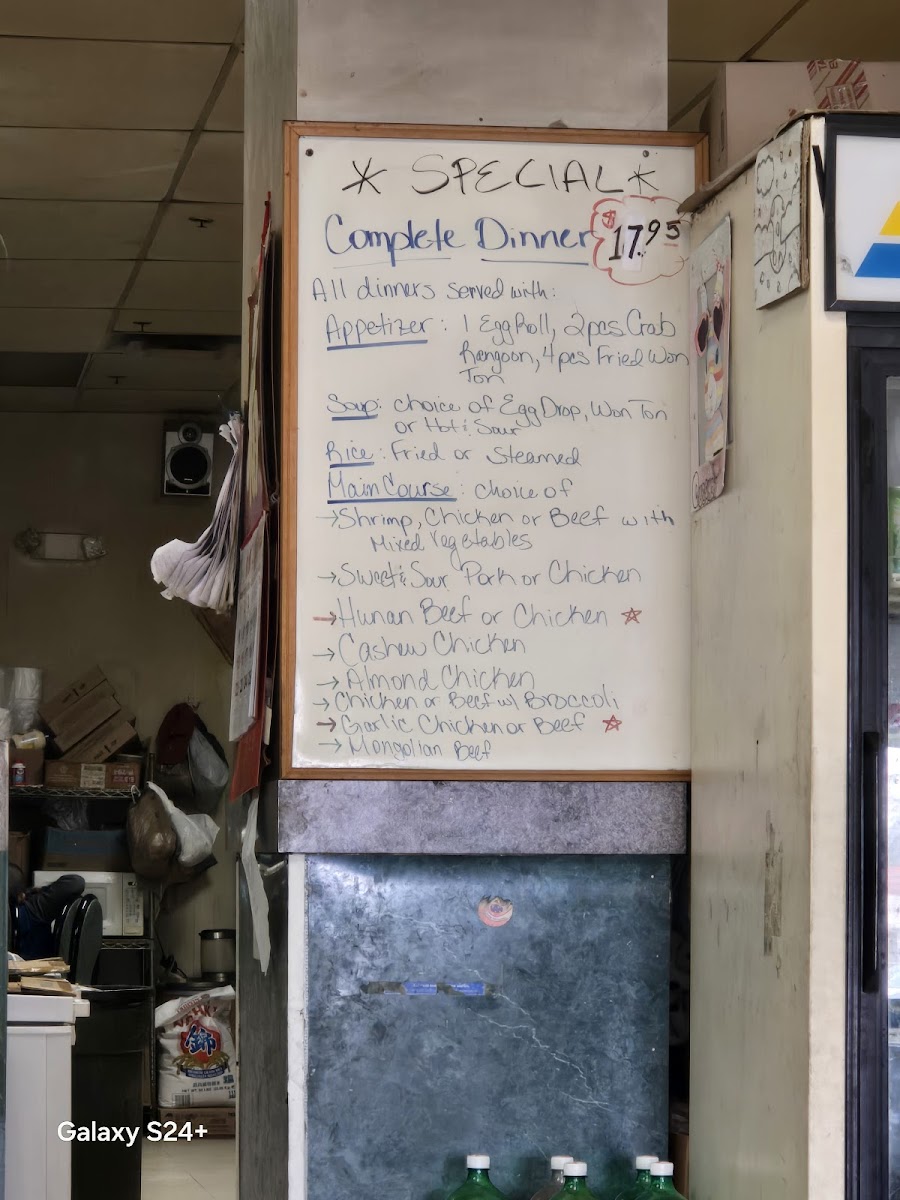 * SPECIAL *
Complete Dinner $17.95
All dinners served with:
Appetizer: 1 Egg Roll, 2pcs Crab
Rangoon, 4pcs Fried Won
Ton
Soup: choice of Egg Drop, Won Ton
or Hot & Sour
Rice: Fried or Steamed
Main Course: choice of
→Shrimp, Chicken or Beef with
Mixed Vegetables
→Sweet & Sour Pork or Chicken
→Hunan Beef or Chicken ☆
→Cashew Chicken
→Almond Chicken
→Chicken or Beef w/ Broccoli
→Garlic Chicken or Beef ☆
→Mongolian Beef
Galaxy S24+